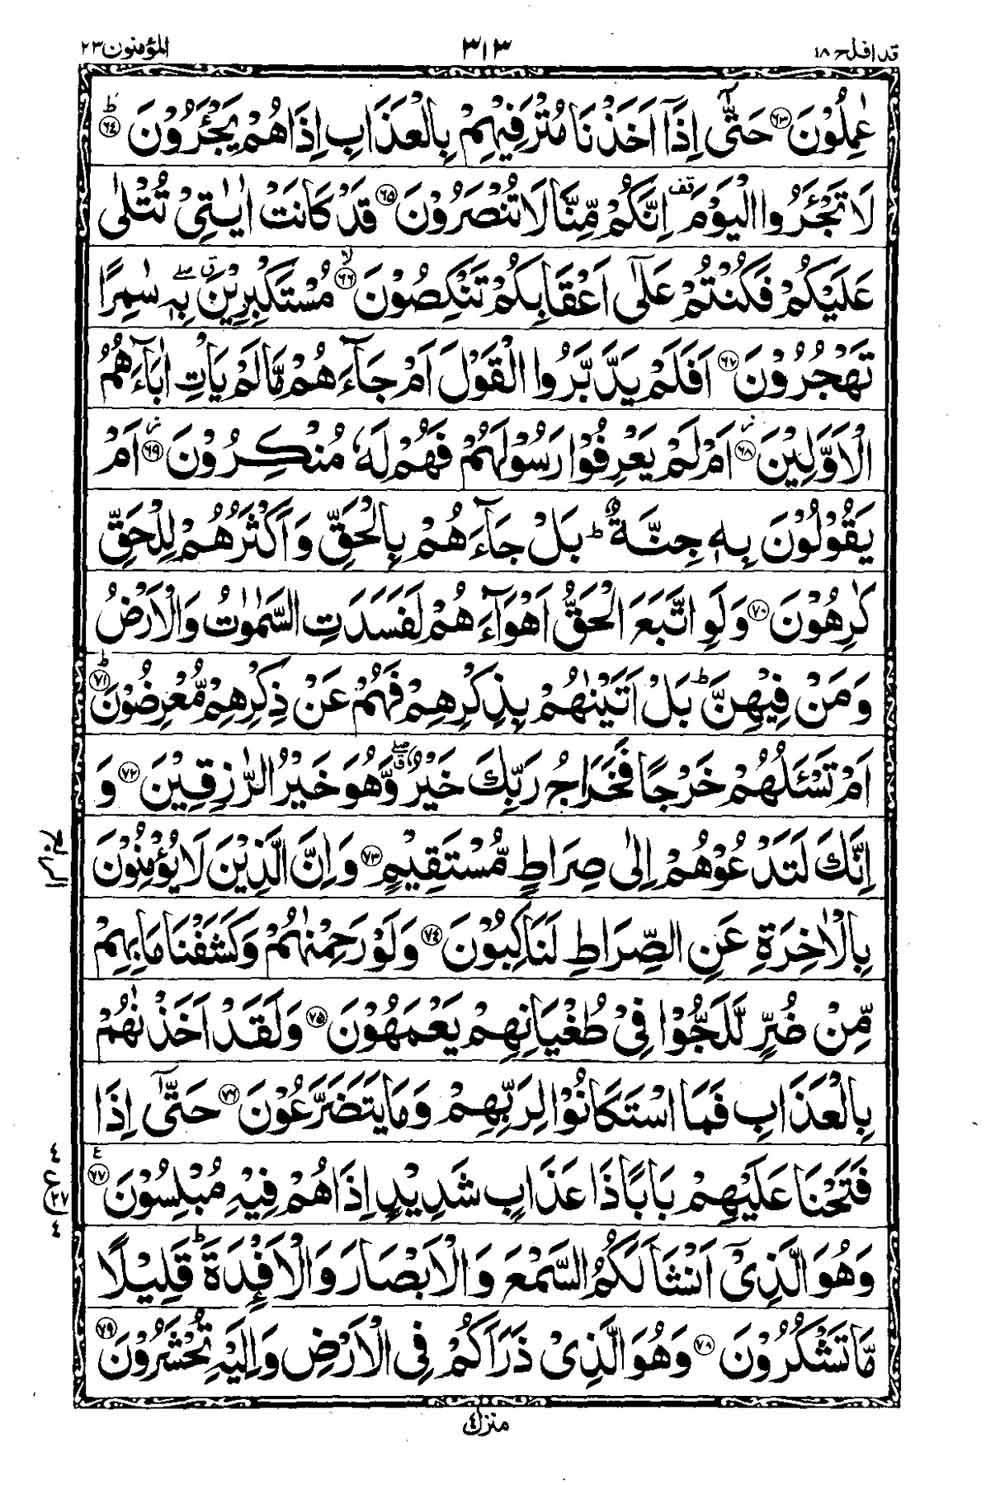 قد افلح ١٨
٣١٣
المؤمنون ٢٣
عٰمِلُوْنَ ۝٦٣ حَتّٰۤى اِذَاۤ اَخَذْنَا مُتْرَفِيْهِمْ بِالْعَذَابِ اِذَا هُمْ يَجْـَٔرُوْنَ ؕ۝٦٤
لَا تَجْـَٔرُوا الْيَوْمَ قف اِنَّكُمْ مِّنَّا لَا تُنْصَرُوْنَ ۝٦٥ قَدْ كَانَتْ اٰيٰتِيْ تُتْلٰى
عَلَيْكُمْ فَكُنْتُمْ عَلٰۤى اَعْقَابِكُمْ تَنْكِصُوْنَ ۙ۝٦٦ مُسْتَكْبِرِيْنَ ۖۗ بِهٖ سٰمِرًا
تَهْجُرُوْنَ ۝٦٧ اَفَلَمْ يَدَّبَّرُوا الْقَوْلَ اَمْ جَآءَهُمْ مَّا لَمْ يَاْتِ اٰبَآءَهُمُ
الْاَوَّلِيْنَ ؗ۝٦٨ اَمْ لَمْ يَعْرِفُوْا رَسُوْلَهُمْ فَهُمْ لَهٗ مُنْكِرُوْنَ ؗ۝٦٩ اَمْ
يَقُوْلُوْنَ بِهٖ جِنَّةٌ ؕ بَلْ جَآءَهُمْ بِالْحَقِّ وَاَكْثَرُهُمْ لِلْحَقِّ
كٰرِهُوْنَ ۝٧٠ وَلَوِ اتَّبَعَ الْحَقُّ اَهْوَآءَهُمْ لَفَسَدَتِ السَّمٰوٰتُ وَالْاَرْضُ
وَمَنْ فِيْهِنَّ ؕ بَلْ اَتَيْنٰهُمْ بِذِكْرِهِمْ فَهُمْ عَنْ ذِكْرِهِمْ مُّعْرِضُوْنَ ؕ۝٧١
اَمْ تَسْـَٔلُهُمْ خَرْجًا فَخَرَاجُ رَبِّكَ خَيْرٌ ۖۗ وَّهُوَ خَيْرُ الرّٰزِقِيْنَ ۝٧٢ وَ
اِنَّكَ لَتَدْعُوْهُمْ اِلٰى صِرَاطٍ مُّسْتَقِيْمٍ ۝٧٣ وَاِنَّ الَّذِيْنَ لَا يُؤْمِنُوْنَ
بِالْاٰخِرَةِ عَنِ الصِّرَاطِ لَنٰكِبُوْنَ ۝٧٤ وَلَوْ رَحِمْنٰهُمْ وَكَشَفْنَا مَا بِهِمْ
مِّنْ ضُرٍّ لَّلَجُّوْا فِيْ طُغْيَانِهِمْ يَعْمَهُوْنَ ۝٧٥ وَلَقَدْ اَخَذْنٰهُمْ
بِالْعَذَابِ فَمَا اسْتَكَانُوْا لِرَبِّهِمْ وَمَا يَتَضَرَّعُوْنَ ۝٧٦ حَتّٰۤى اِذَا
فَتَحْنَا عَلَيْهِمْ بَابًا ذَا عَذَابٍ شَدِيْدٍ اِذَا هُمْ فِيْهِ مُبْلِسُوْنَ ۝٧٧ ع
وَهُوَ الَّذِيْۤ اَنْشَاَ لَكُمُ السَّمْعَ وَالْاَبْصَارَ وَالْاَفْـِٕدَةَ ؕ قَلِيْلًا
مَّا تَشْكُرُوْنَ ۝٧٨ وَهُوَ الَّذِيْ ذَرَاَكُمْ فِي الْاَرْضِ وَاِلَيْهِ تُحْشَرُوْنَ ۝٧٩
منزل ٤